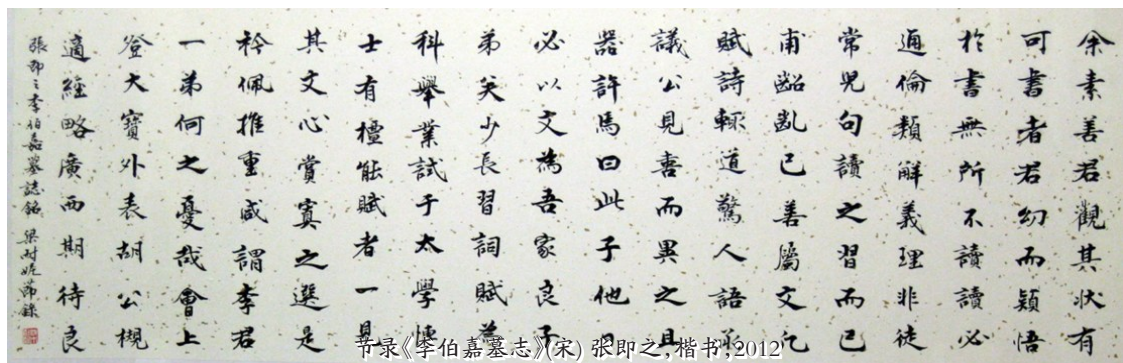 余素善君觀其状有
可書者君幼而穎悟
於書無所不讀讀必
通倫類解義理非徒
常児句讀之習而已
甫齠亂已善屬文凡
賦詩輒道驚人語承
議公見喜而異之且
器許焉曰此子他日
必以文為吾家良子
弟矣少長習詞賦為
科舉業試于太學博
士有檀能賦者一見
其文心賞寘之選是
衿佩推重咸謂李君
一弟何之憂哉會上
登大寶外表胡公槻
適經略廣西期待良
張即之李伯嘉墓誌銘 梁對旎節錄
节录《李伯嘉墓志》(宋) 张即之,楷书,2012